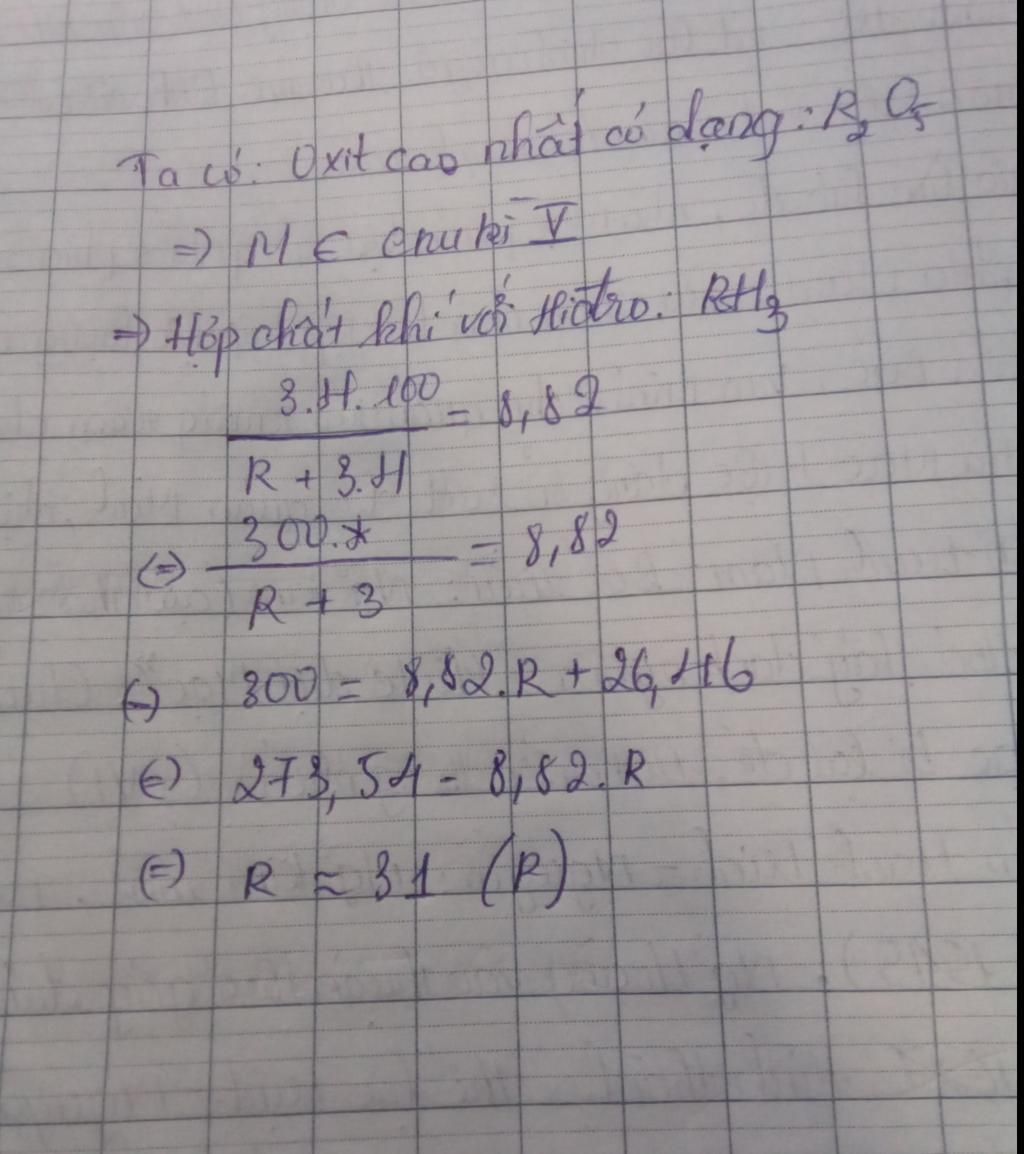 Ta có: Oxit cao nhất có dạng: R₂O₅
=> M ∈ chu kì V
=> Hợp chất khí với Hiđro: RH₃
3.H.100 / R + 3.H = 8,82
(=) 300 / R + 3 = 8,82
(=) 300 = 8,82.R + 26,46
(=) 273,54 = 8,82.R
(=) R ≈ 31 (P)